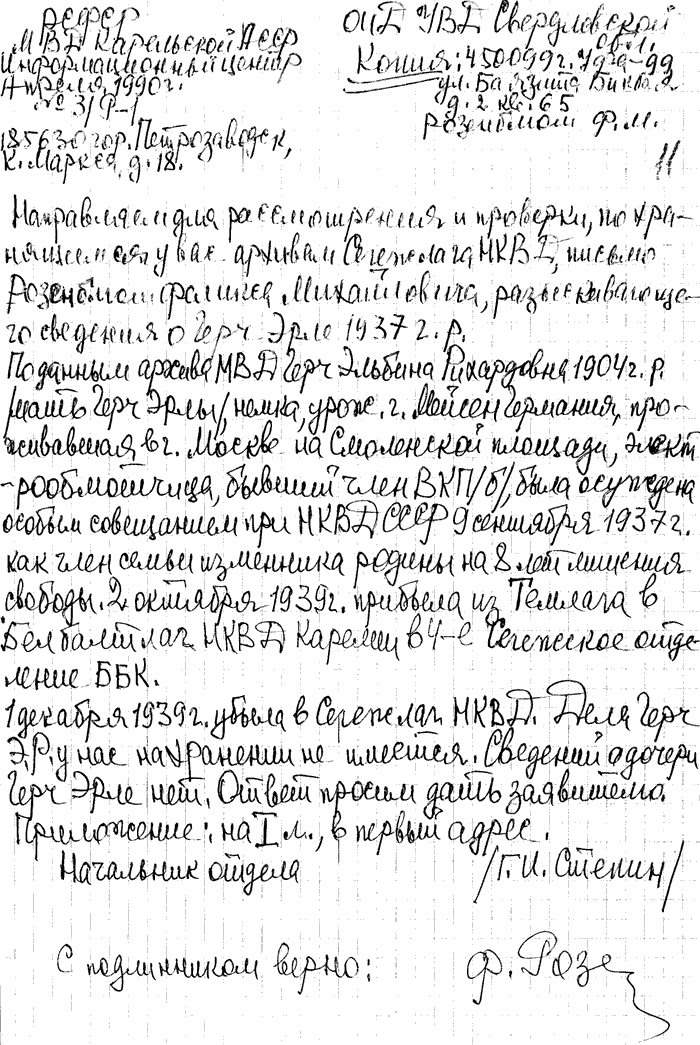 РСФСР
МВД Карельской АССР
Информационный центр
Апреля 1990г.
№ 3/Р-1
185630 гор. Петрозаводск,
К. Маркса, д. 18.
ОИД УВД Свердловской
обл.
Копия: 450099г. Уфа-99
ул. Баязита Бикбая
д. 2 кв. 65
Розенблюм Ф.М.
11
Направляем для рассмотрения и проверки, по хра-
нящимся у вас архивам Сегежлага НКВД, письмо
Розенблюм Феликса Михайловича, разыскивающе-
го сведения о Герч Эрле 1937 г.р.
По данным архива МВД Герч Эльбина Рихардовна 1904 г.р.
/мать Герч Эрлы/, немка, урож. г. Мейсен Германия, про-
живавшая в г. Москве на Смоленской площади, элект
-рообмотчица, бывший член ВКП/б/, была осуждена
особым совещанием при НКВД СССР 9 сентября 1937г.
как член семьи изменника родины на 8 лет лишения
свободы. 2 октября 1939г. прибыла из Темлага в
Белбалтлаг НКВД Карелии в 4-е Сегежское отде
ление ББК.
1 декабря 1939г. убыла в Сегежлаг НКВД. Дела Герч
Э.Р. у нас на хранении не имеется. Сведений о дочери
Герч Эрле нет. Ответ просим дать заявителю.
Приложение: на I л., в первый адрес.
Начальник отдела /Г.И. Степин/
С подлинником верно: Ф. Розе